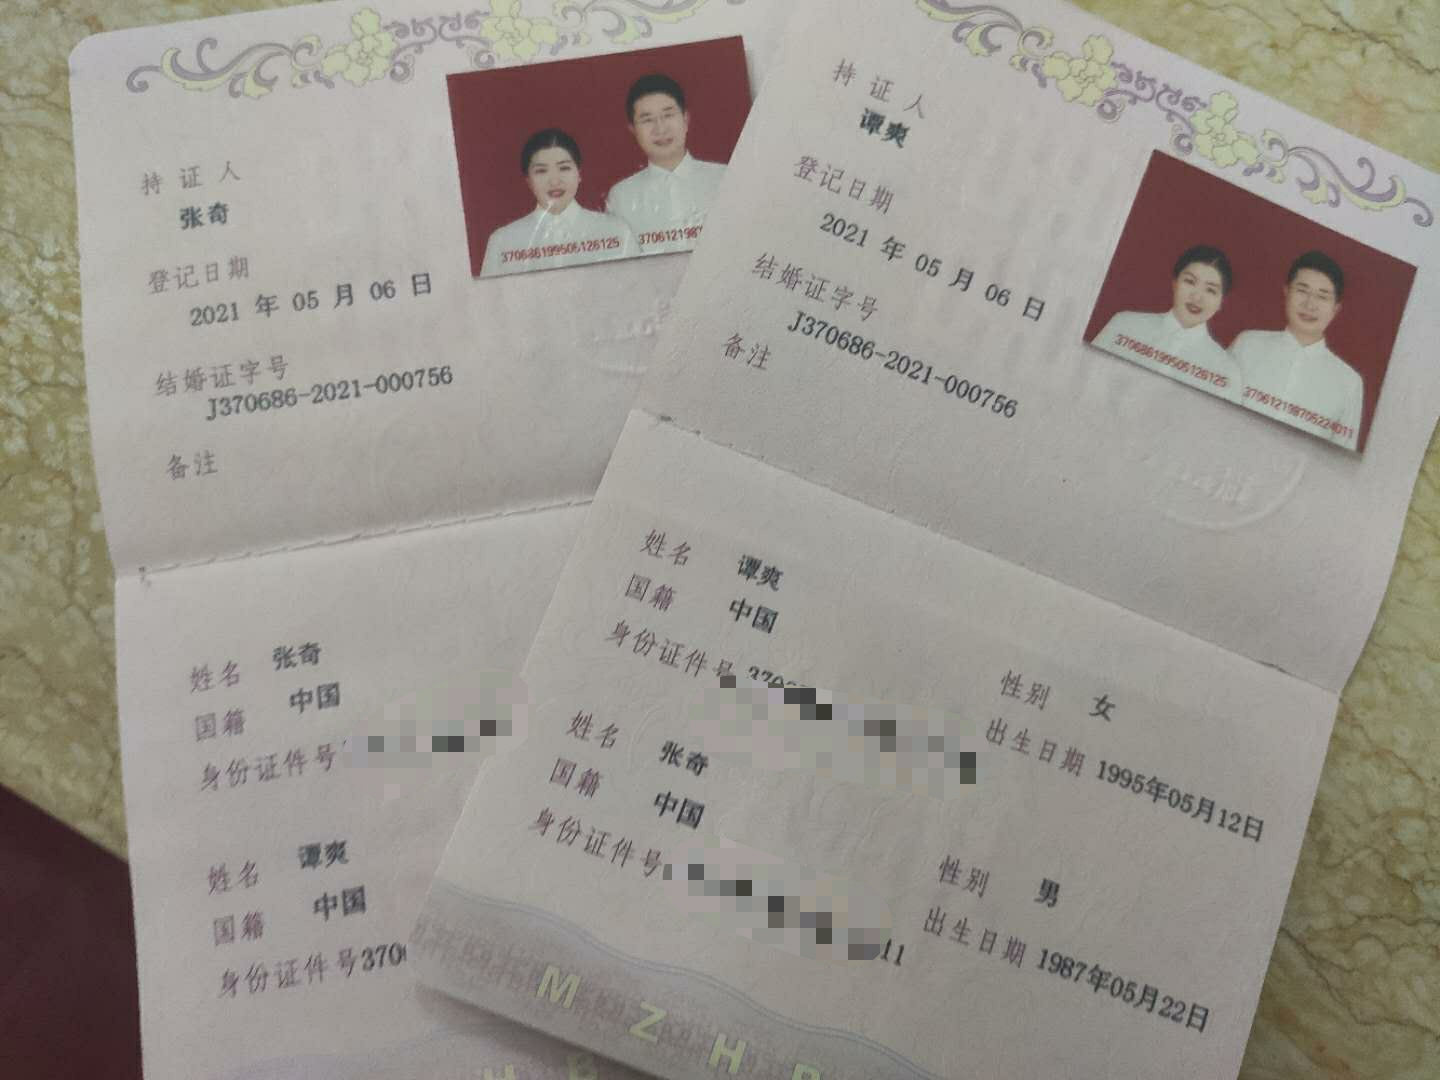 持证人
张奇
登记日期
2021 年 05 月 06 日
结婚证字号
J370686-2021-000756
备注
370686199505126125 3706121987
姓名 张奇
国籍 中国
身份证件号
姓名 谭爽
国籍 中国
身份证件号370
持证人
谭爽
登记日期
2021 年 05 月 06 日
结婚证字号
J370686-2021-000756
备注
370686199505126125 370612198705224011
姓名 谭爽 性别 女
国籍 中国 出生日期 1995年05月12日
身份证件号 370
姓名 张奇 性别 男
国籍 中国 出生日期 1987年05月22日
身份证件号 11
MZHB
HB